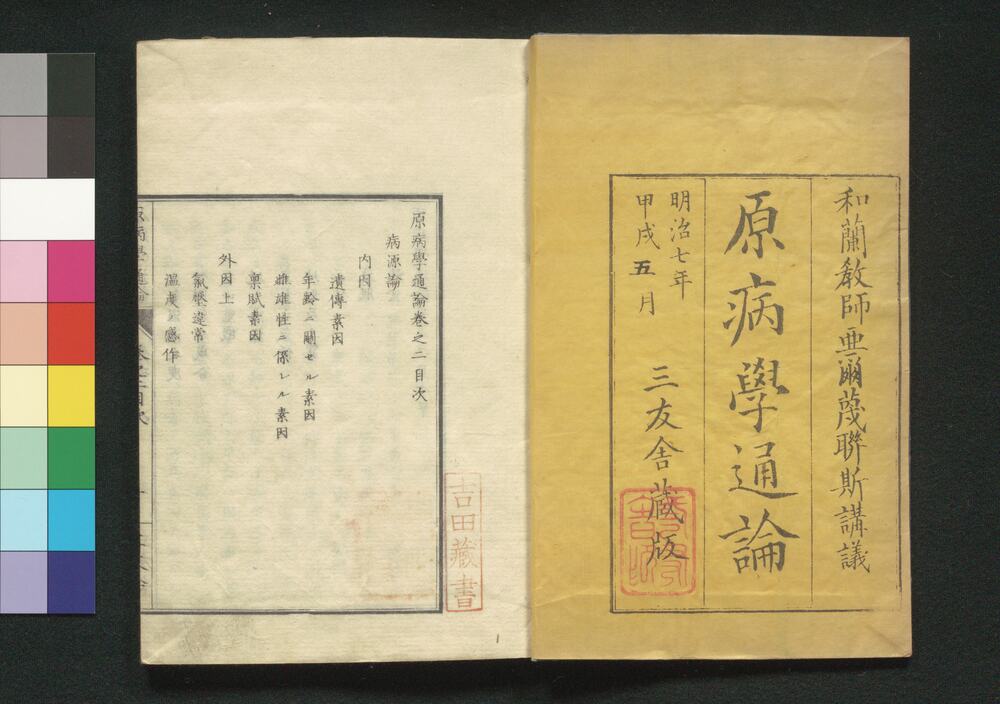 和蘭教師亜爾蔑聯斯講議
原病學通論
明治七年
甲戌五月
三友舎蔵版
原病學通論巻之二目次
病源論
内因
遺傳素因
年齢ニ關セル素因
雌雄性ニ係レル素因
稟賦素因
外因上
氣壓違常
温度ノ感作
吉田藏書